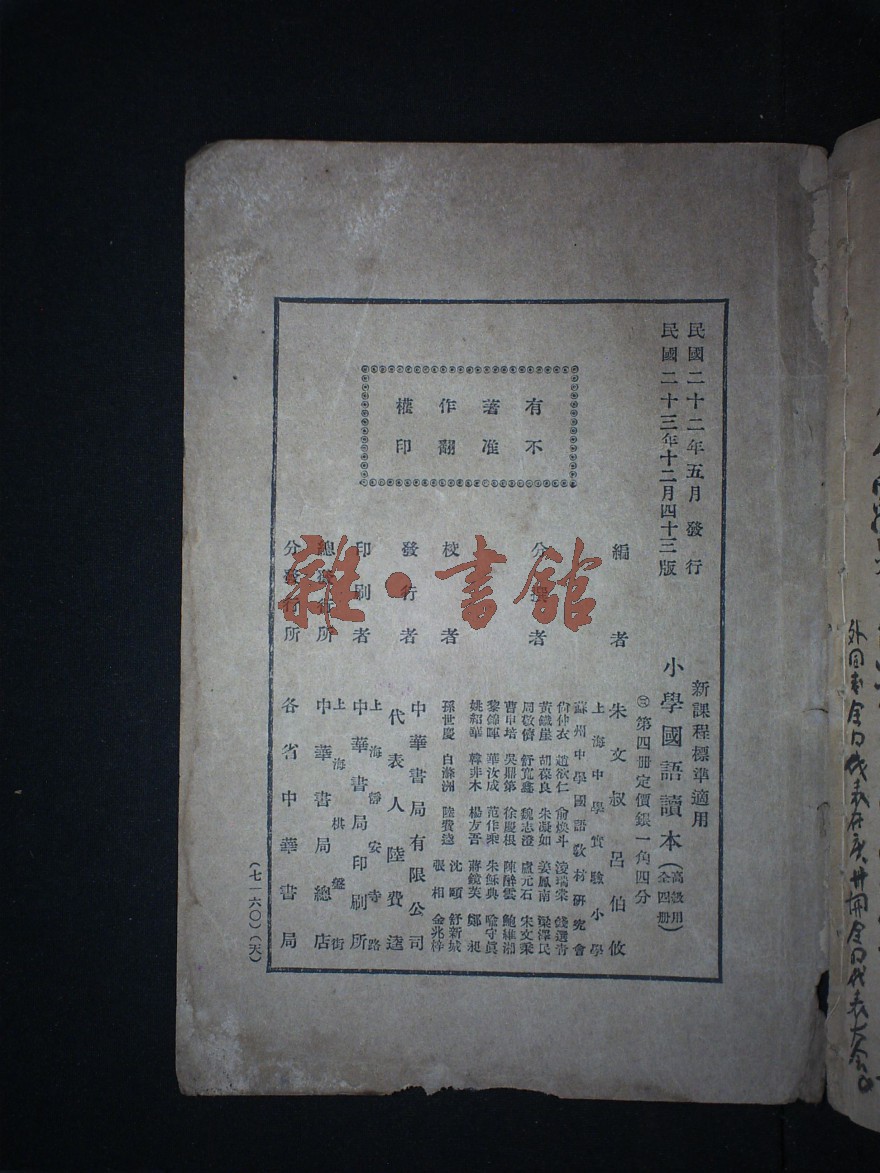 民國二十二年五月發行
民國二十三年十二月四十三版
新課程標準適用
小學國語讀本（高級用 全四冊）
㊂第四冊定價銀一角四分
編者 朱文叔 呂伯攸
分撰者
上海中學實驗小學
蘇州中學國語教材研究會
俞仲衣 趙欲仁 俞煥斗 淩瑞棠 錢選青
黃鐵崖 胡葆良 朱凝如 姜鳳南 梁澤民
周敬儕 舒寬鑫 魏志澄 盧元石 宋文
吳鼎第 徐慶根 陳醉雲 鮑維湘
校者
黎錦暉 華汝成 范作乘 朱穌典 喻守真
姚紹華 韓非木 楊友吾 蔣鏡芙 鄭昶
孫世慶 白滌洲 陸費逵 沈頤 舒新城
張相 金兆梓
發行者 中華書局有限公司
代表人 陸費逵
印刷者 上海靜安寺路
中華書局印刷所
總發行所 上海棋盤街
中華書局總店
分發行所 各省中華書局
（七一六〇）（天）
有著作權
不准翻印
雜·書館